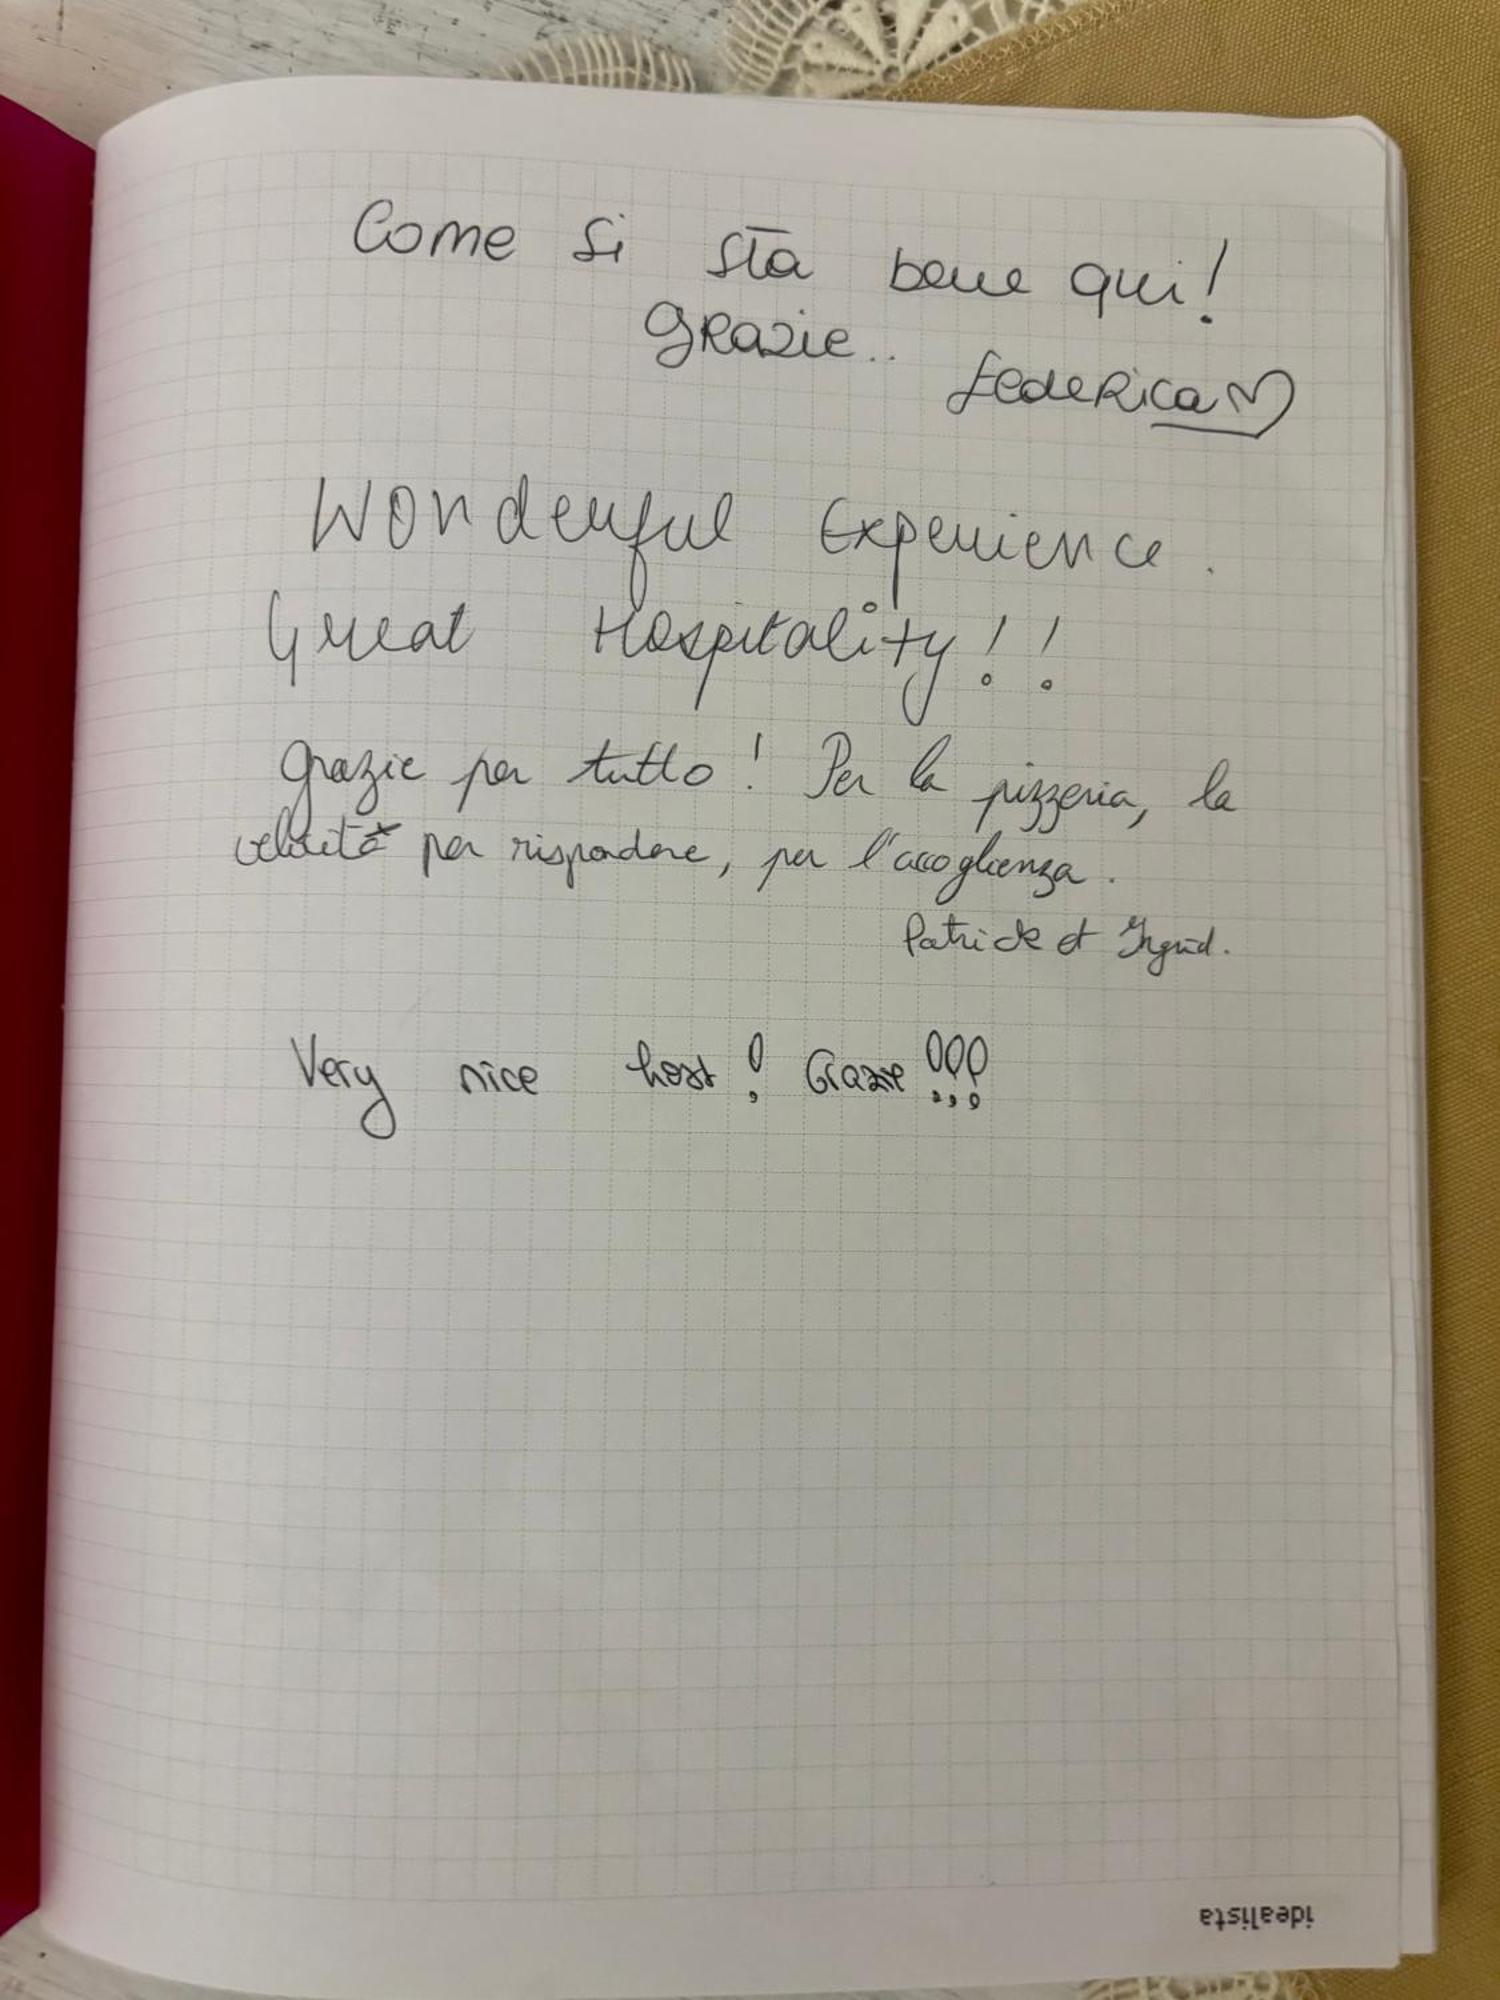 Come si sta bene qui!
Grazie..
Federica
Wonderful Experience.
Great Hospitality!!
Grazie per tutto! Per la pizzeria, la
velocità per rispondere, per l'accoglienza.
Patrick et Ingrid.
Very nice host! Grazie!!!
idealista